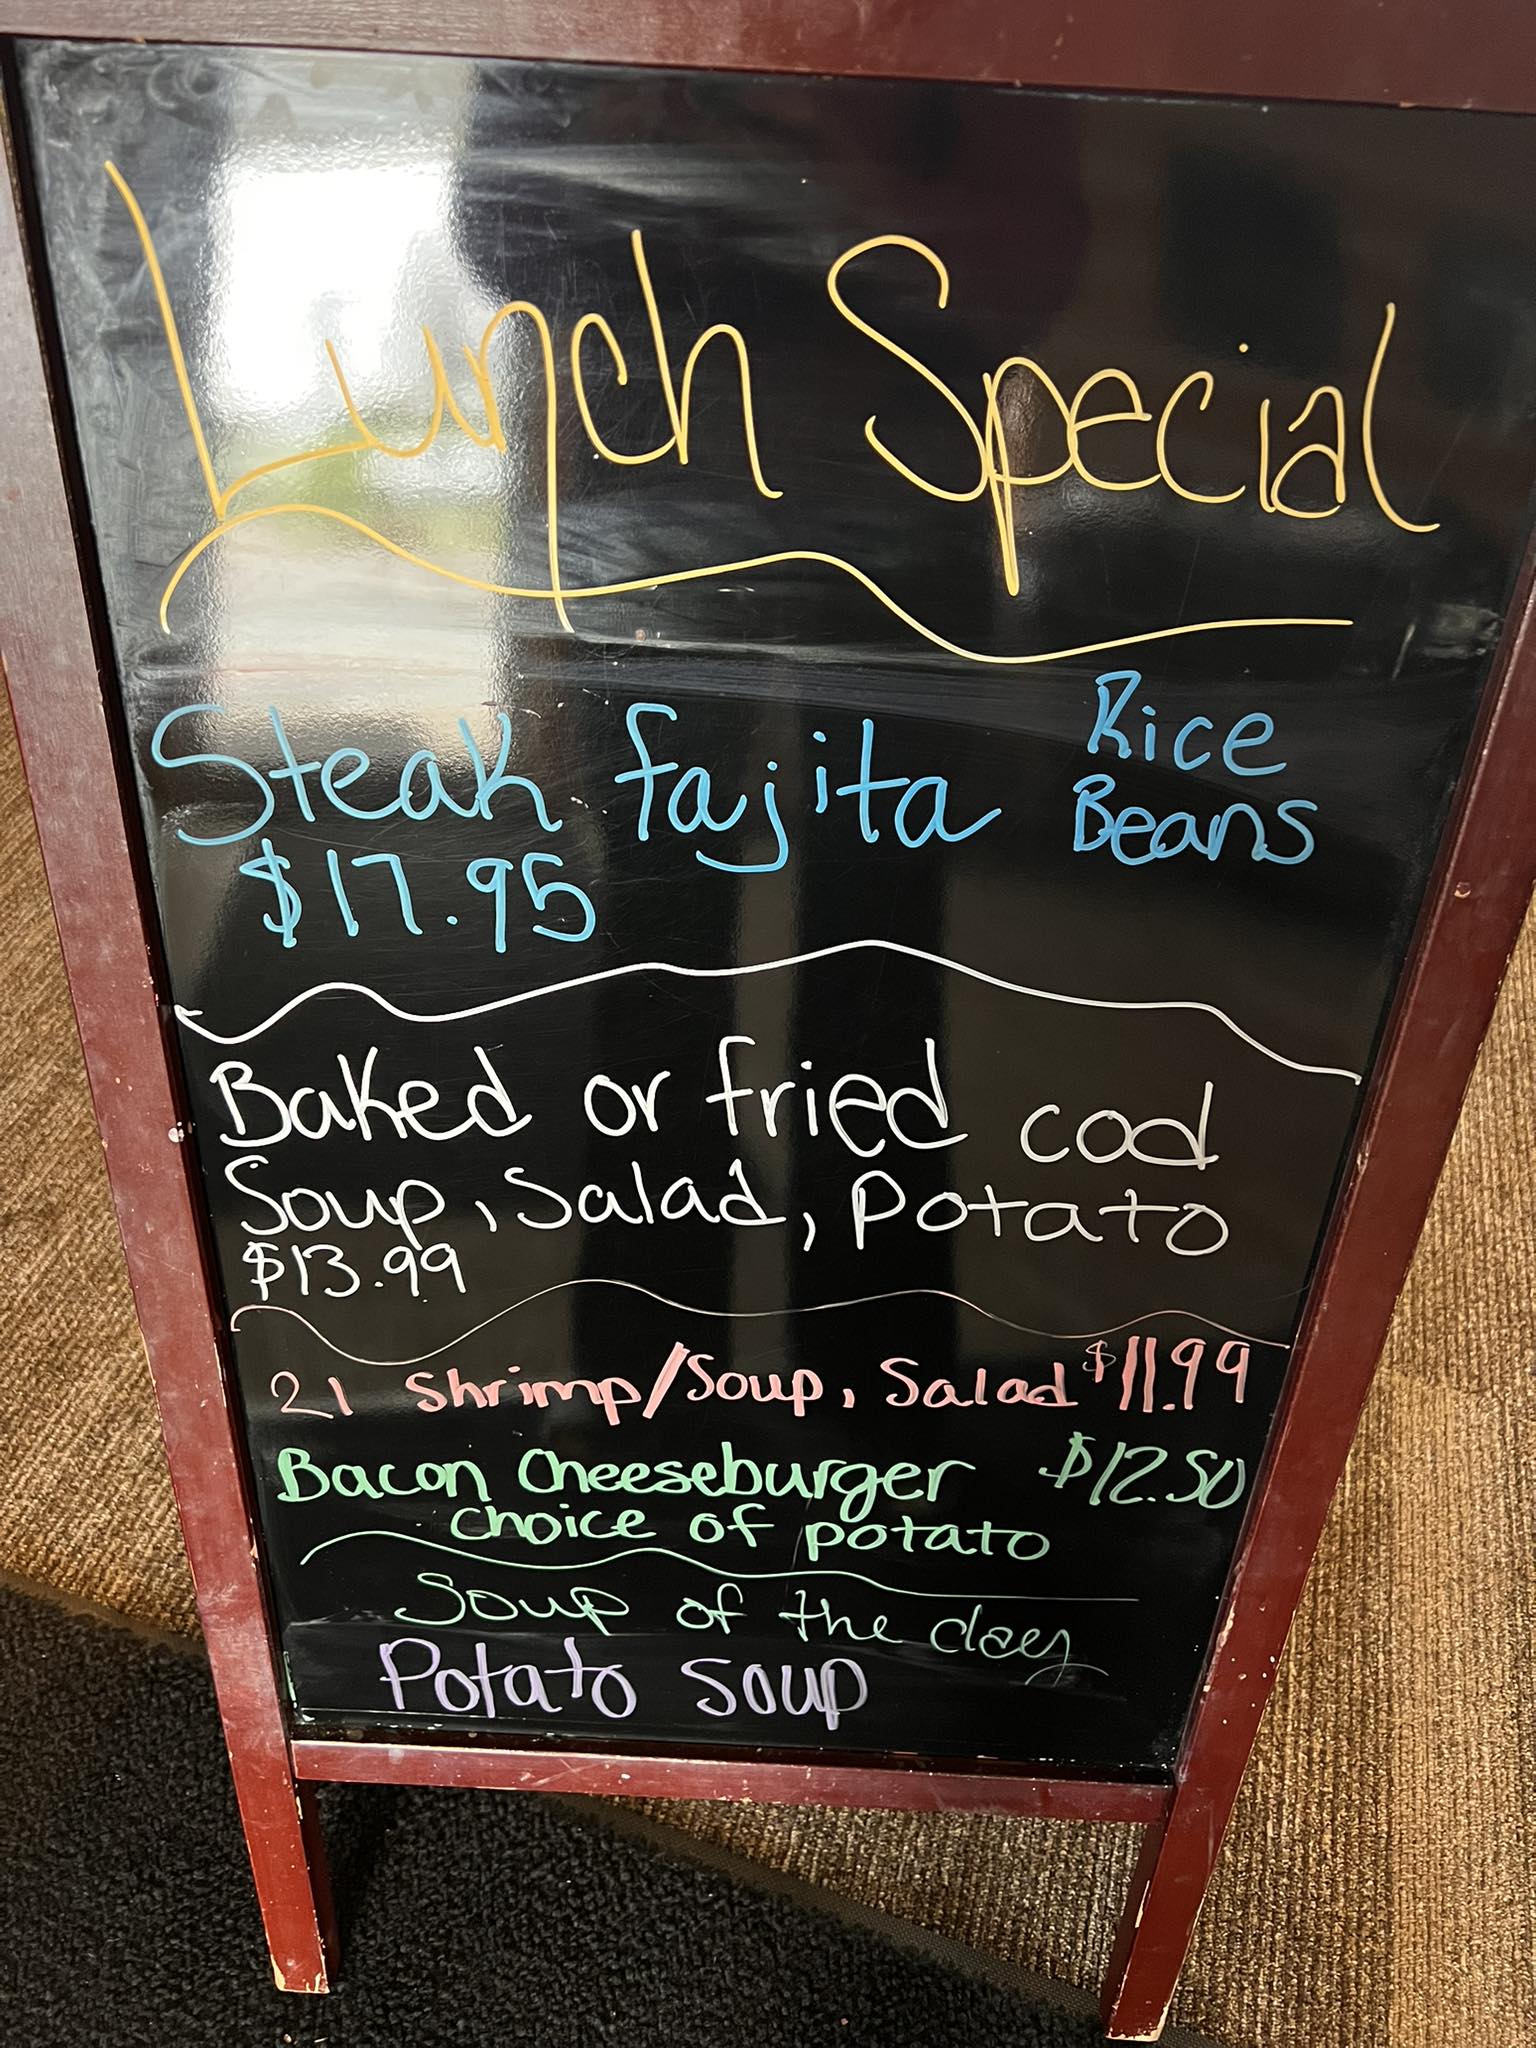 Lunch Special
Steak fajita Rice
Beans
$17.95
Baked or fried cod
Soup, Salad, potato
$13.99
21 Shrimp/Soup, Salad $11.99
Bacon Cheeseburger $12.50
choice of potato
Soup of the day
Potato soup